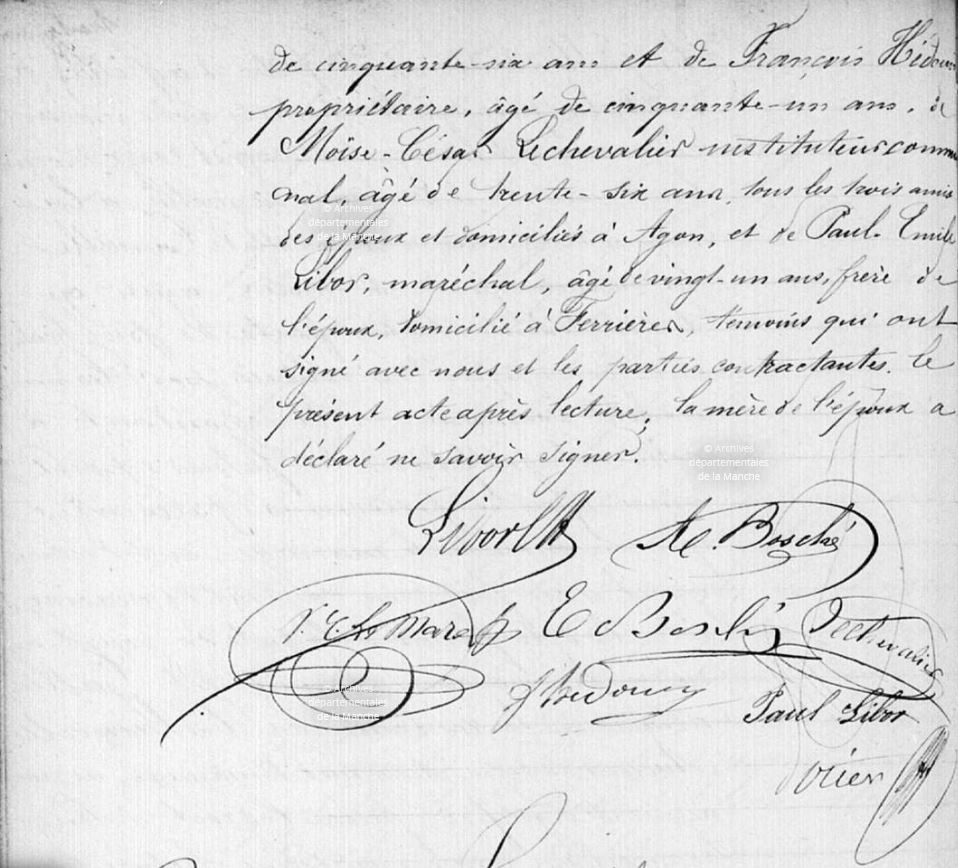 de cinquante-six ans et de François Hédouin
propriétaire, âgé de cinquante-un ans, de
Moïse-César Lechevalier instituteur commu
nal, âgé de trente-six ans, tous les trois amis
des époux et domiciliés à Agon, et de Paul-Emile
Libor, maréchal, âgé de vingt-un ans, frère de
l'époux, domicilié à Ferrières, témoins qui ont
signé avec nous et les parties contractantes, le
présent acte après lecture, la mère de l'époux a
déclaré ne savoir signer.
© Archives
départementales
de la Manche
© Archives
départementales
de la Manche
Libor A. Bosché
E Bosché Lechevalier
Hédouin
Paul Libor
© Archives
départementales
de la Manche